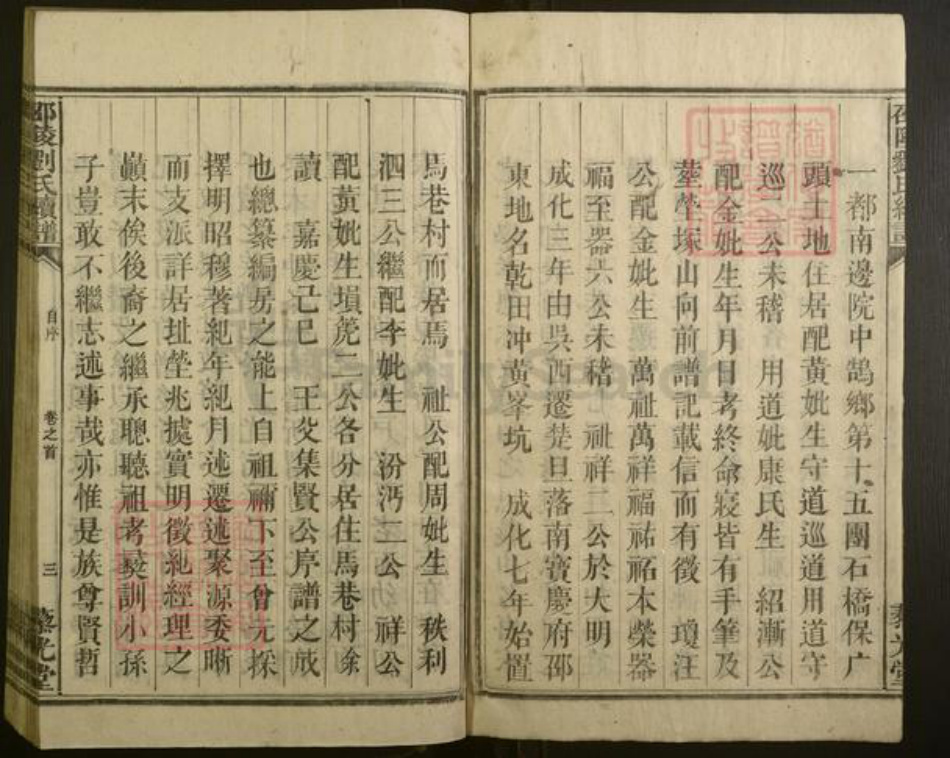 一都南邊院中鵠鄉第十五團石橋保广
頭土地住居配黃妣生守道巡道用道守
巡二公未稽 用道妣康氏生 紹漸公
配金妣生年月日考終命寢皆有手筆及
塟塋塚山向前譜記載信而有徵 瓊汪
公配金妣生 萬祉萬祥福祐祏本榮器
福至器六公未稽 祉祥二公於大明
成化三年由吳西遷楚旦落南寶慶府邵
東地名乾田冲黃峯坑 成化七年始置
馬巷村而居焉 祉公配周妣生 秩利
泗三公繼配李妣生 汾沔二公 祥公
配黃妣生塤箎二公各分居住馬巷村余
讀 嘉慶己巳 王父集賢公序譜之成
也總纂編房之能上自祖禰下至曾元採
擇明昭穆著紀年紀月述遷述聚源委晰
而支派詳居址塋兆摭實明徵紀經理之
巔末俟後裔之繼承聰聽祖考彝訓小孫
子豈敢不繼志述事哉亦惟是族尊賢哲
邵陵劉氏續譜
自序
卷之首
三
藜光堂